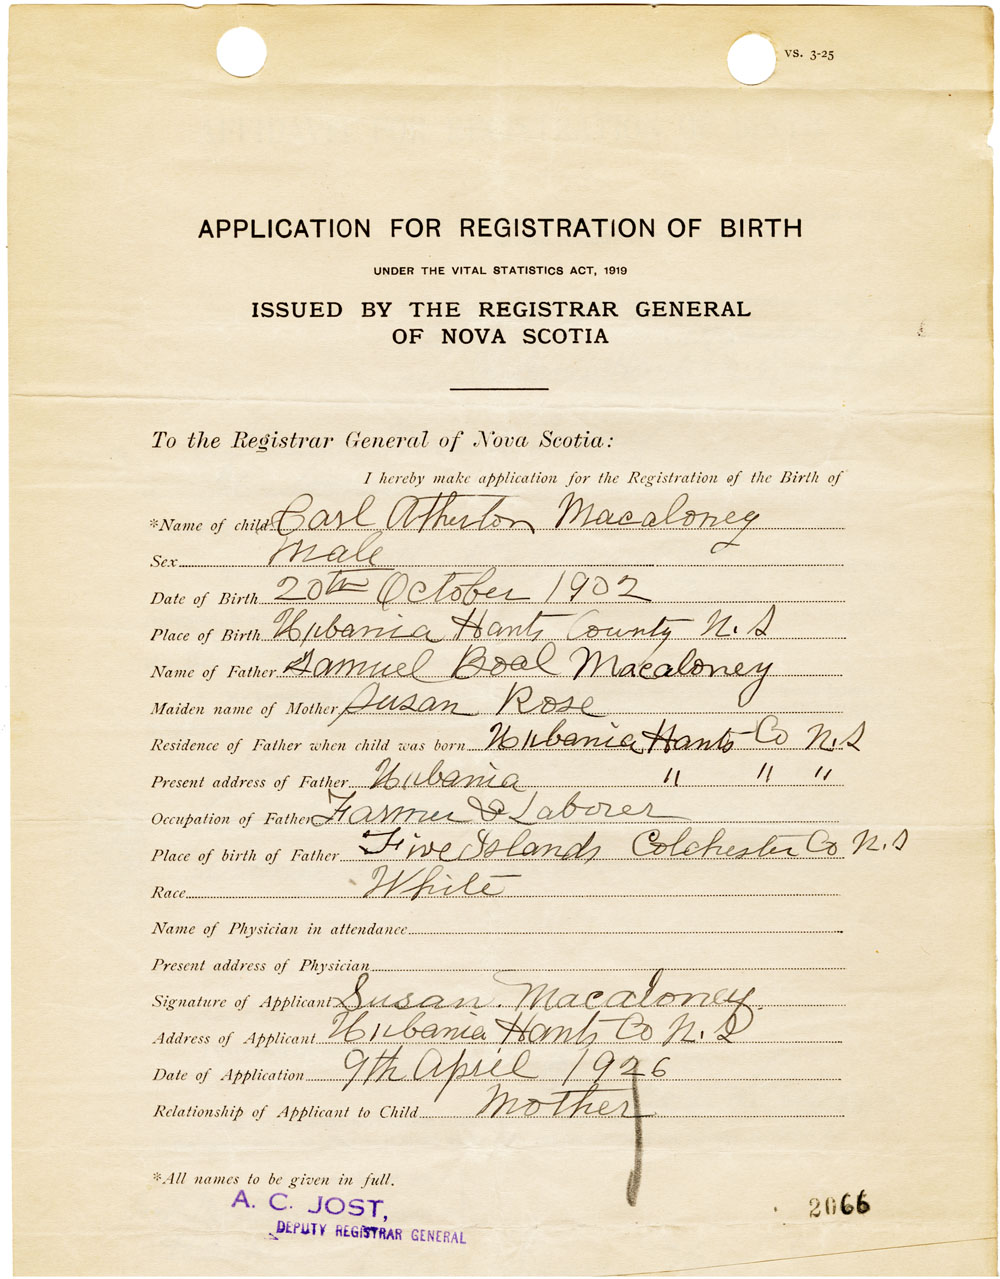 VS. 3-25
APPLICATION FOR REGISTRATION OF BIRTH
UNDER THE VITAL STATISTICS ACT, 1919
ISSUED BY THE REGISTRAR GENERAL
OF NOVA SCOTIA
To the Registrar General of Nova Scotia:
I hereby make application for the Registration of the Birth of
*Name of child Carl Atherton Macaloney
Sex Male
Date of Birth 20th October 1902
Place of Birth Urbania Hants County N.S
Name of Father Samuel Boal Macaloney
Maiden name of Mother Susan Rose
Residence of Father when child was born Urbania Hants Co N.S
Present address of Father Urbania " " "
Occupation of Father Farmer & Laborer
Place of birth of Father Five Islands Colchester Co N.S
Race White
Name of Physician in attendance
Present address of Physician
Signature of Applicant Susan Macaloney
Address of Applicant Urbania Hants Co N.S
Date of Application 9th April 1926
Relationship of Applicant to Child Mother
*All names to be given in full.
A. C. JOST,
DEPUTY REGISTRAR GENERAL
2066